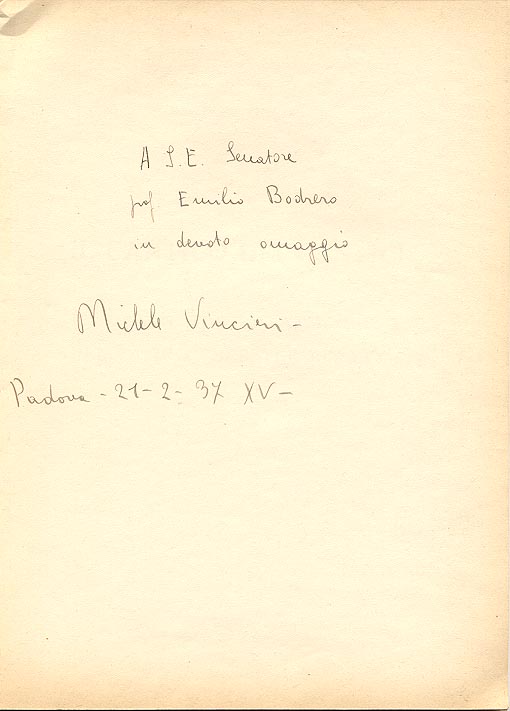 A S.E. Senatore
prof Emilio Bodrero
in devoto omaggio
Michele Vincieri -
Padova - 21 - 2 - 37 XV -